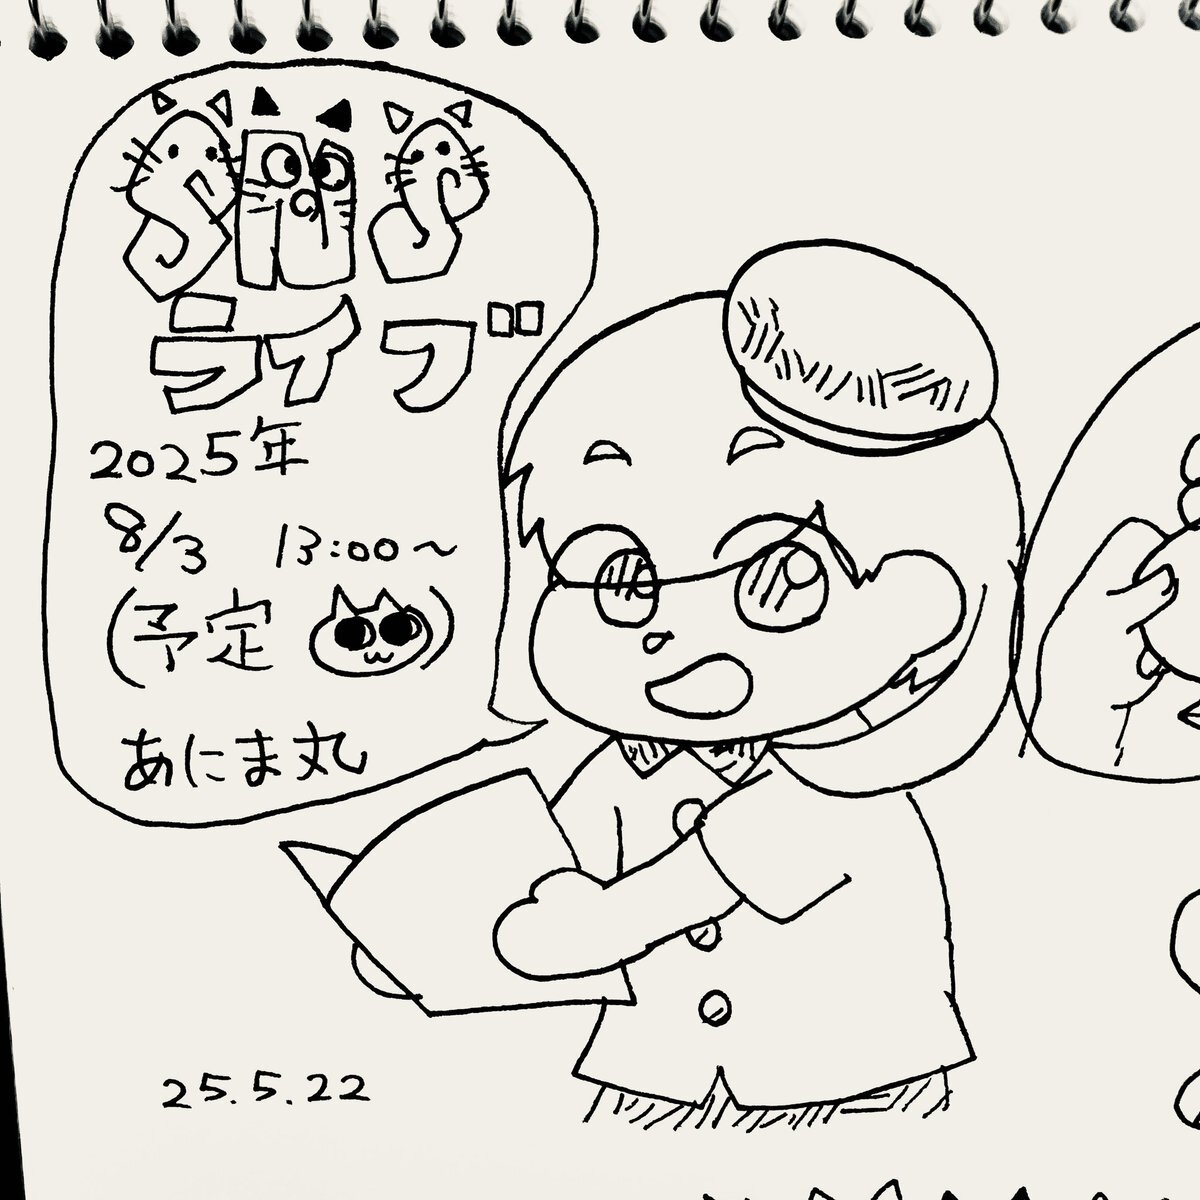 SMS
ライブ
2025年
8/3 13:00～
(予定 )
あにま丸
25.5.22